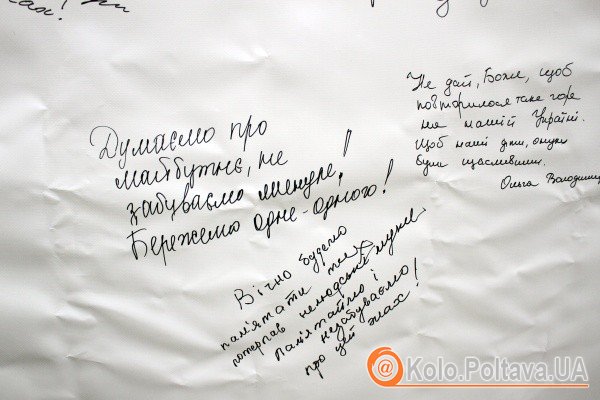 Думаємо про
майбутнє, не
забуваємо минуле!
Бережемо одне-одного!
Не дай, Боже, щоб
повторилося таке горе
на нашій Україні.
Щоб наші діти, онуки
були щасливими.
Ольга Володимир
Вічно будемо
пам'ятати тих
потерпав нелюдські муки
Пам'ятаймо і
незабуваємо
про цей жах!
@Kolo.Poltava.UA